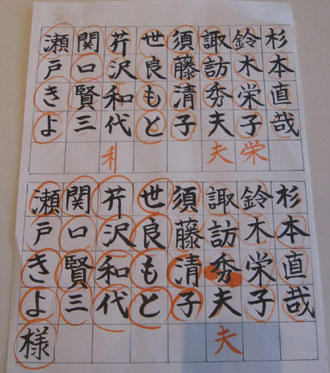 杉本直哉
鈴木栄子
栄
諏訪秀夫
夫
須藤清子
世良もと
芹沢和代
利
関口賢三
瀬戸きよ
杉本直哉
鈴木栄子
諏訪秀夫
夫
須藤清子
世良もと
芹沢和代
関口賢三
瀬戸きよ様